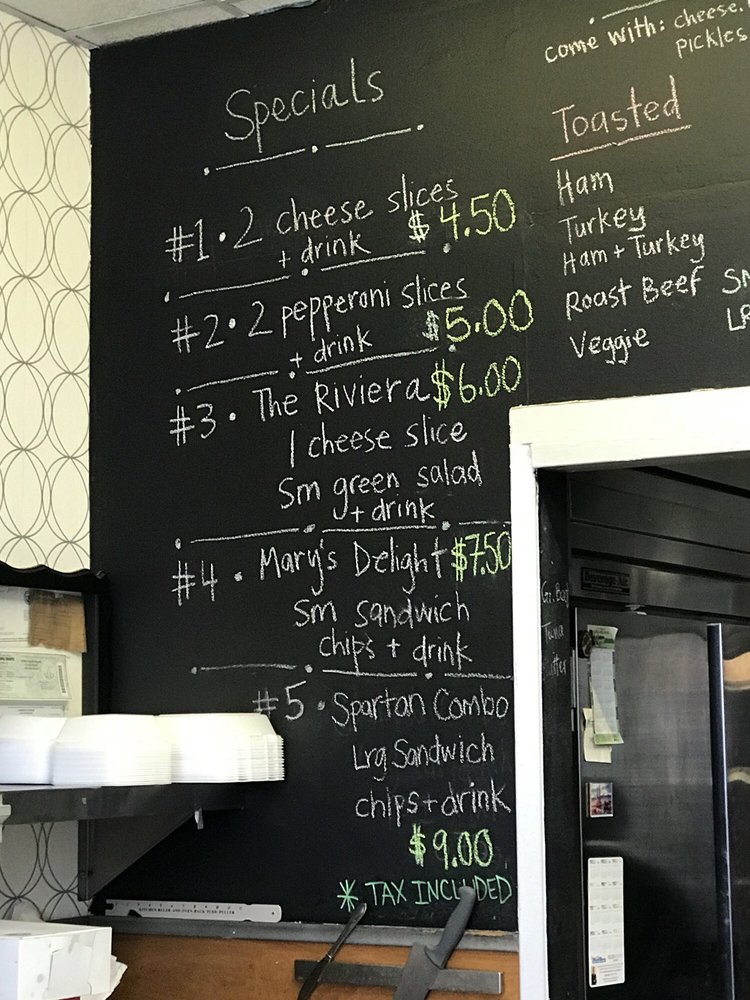 Specials
#1 • 2 cheese slices
+ drink $4.50
#2 • 2 pepperoni slices
+ drink $5.00
#3 • The Riviera $6.00
1 cheese slice
Sm green salad
+ drink
#4 • Mary's Delight $7.50
Sm sandwich
chips + drink
#5 • Spartan Combo
Lrg Sandwich
chips + drink
$9.00
* TAX INCLUDED
come with: cheese,
pickles
Toasted
Ham
Turkey
Ham + Turkey
Roast Beef
Veggie
Beverage-Air
Tuna